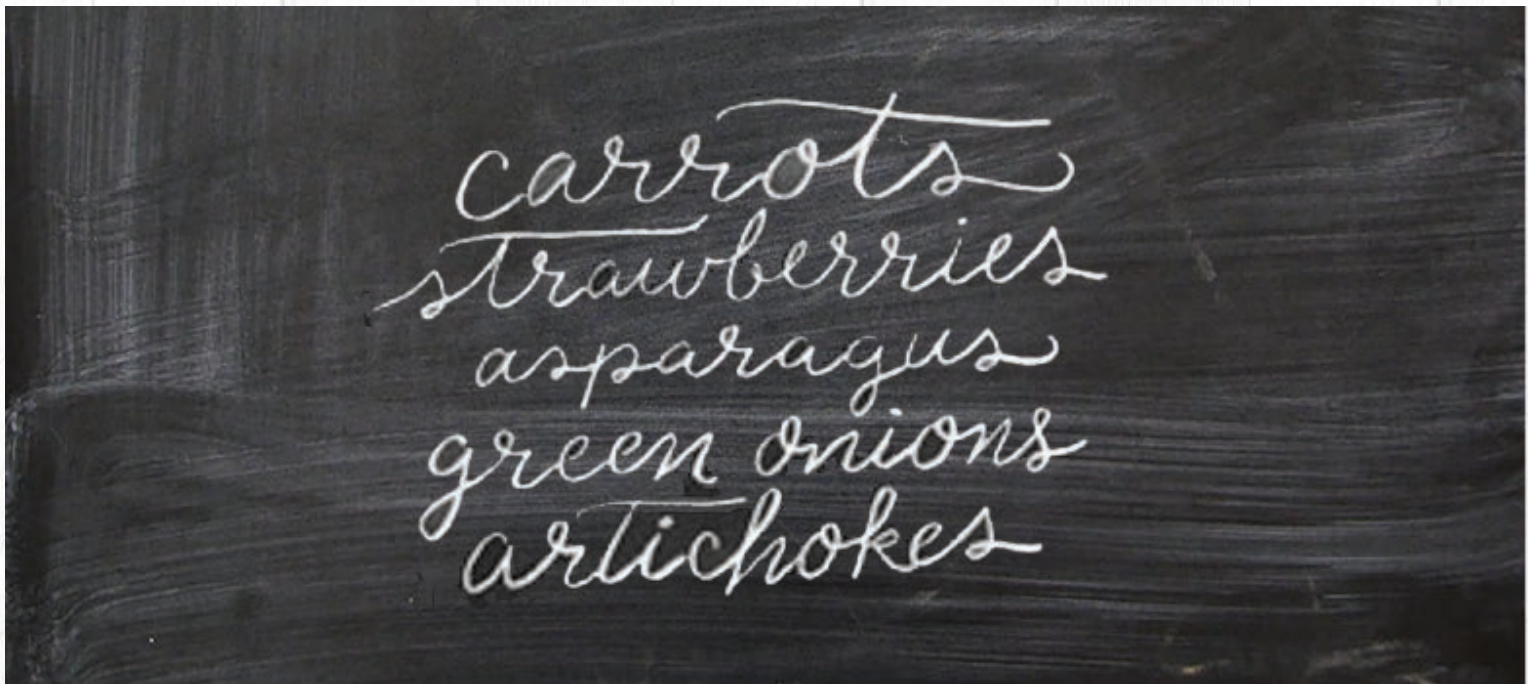 carrots
strawberries
asparagus
green onions
artichokes